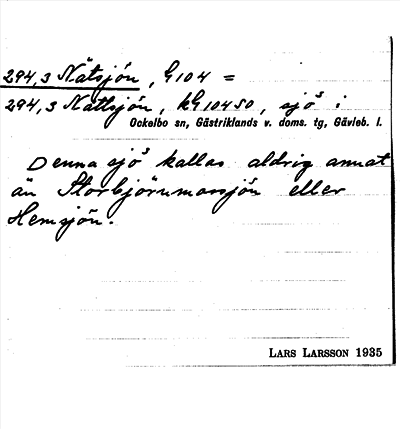 294,3 Nätsjön, G104 =
294,3 Nattsjön, kG10450, sjö i
Ockelbo sn, Gästriklands v. doms. tg, Gävleb. l.
Denna sjö kallas aldrig annat
än Storbjörnmorsjön eller
Hemsjön.
LARS LARSSON 1935